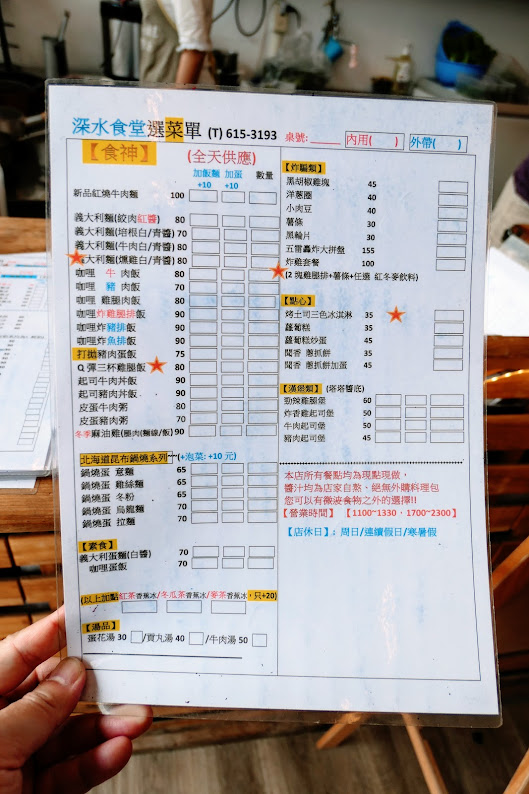 深水食堂選菜單 (T) 615-3193 桌號: 內用( ) 外帶( )
【食神】 (全天供應)
加飯麵 加蛋 數量
+10 +10
新品紅燒牛肉麵 100
義大利麵(絞肉紅醬) 80
義大利麵(培根白/青醬) 70
義大利麵(牛肉白/青醬) 80
義大利麵(燻雞白/青醬) 80
咖哩 牛 肉飯 80
咖哩 豬 肉飯 70
咖哩 雞腿肉飯 80
咖哩炸雞腿排飯 90
咖哩炸豬排飯 80
咖哩炸魚排飯 80
打拋豬肉蛋飯 75
Q 彈三杯雞腿飯 80
起司牛肉丼飯 90
起司豬肉丼飯 80
皮蛋牛肉粥 80
皮蛋豬肉粥 70
冬季麻油雞(腿肉(麵線/飯) 90
北海道昆布鍋燒系列~(+泡菜: +10 元)
鍋燒蛋 意麵 65
鍋燒蛋 雞絲麵 65
鍋燒蛋 冬粉 65
鍋燒蛋 烏龍麵 70
鍋燒蛋 拉麵 70
【素食】
義大利蛋麵(白醬) 70
咖哩蛋飯 70
(以上加點紅茶香蕉冰/冬瓜茶香蕉冰/麥茶香蕉冰,只+20)
【湯品】
蛋花湯 30 /貢丸湯 40 /牛肉湯 50
【炸騙類】
黑胡椒雞塊 45
洋蔥圈 40
小肉豆 40
薯條 30
黑輪片 30
五雷轟炸大拼盤 155
炸雞套餐 100
(2 塊雞腿排+薯條+任選 紅冬麥飲料)
【點心】
烤土司三色冰淇淋 35
蘿蔔糕 35
蘿蔔糕炒蛋 45
聞香 蔥抓餅 35
聞香 蔥抓餅加蛋 45
【漢堡類】(塔塔醬底)
勁辣雞腿堡 60
炸香雞起司堡 50
牛肉起司堡 50
豬肉起司堡 45
本店所有餐點均為現點現做,
醬汁均為店家自熬、絕無外購料理包
您可以有微波食物之外的選擇!!
【營業時間】 【1100~1330、1700~2300】
【店休日】: 周日/連續假日/寒暑假